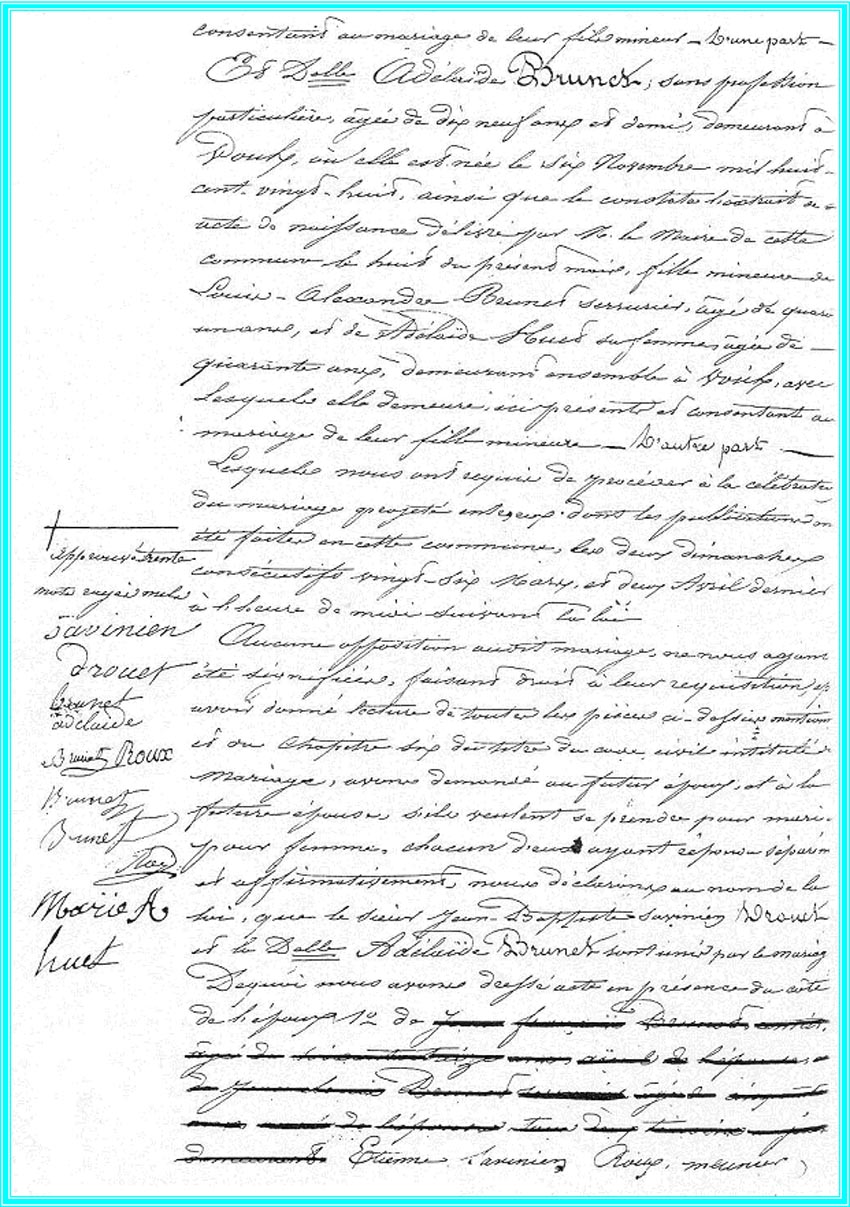 consentants au mariage de leur fils mineur – D'une part –
Et Delle Adélaïde Brunet, sans profession
particulière, âgée de dix neuf ans et demi, demeurant à
où elle est née le six Novembre mil huit-
cent-vingt-huit, ainsi que le constate l'extrait de
acte de naissance délivré par M. le Maire de cette
commune le huit du présent mois, fille mineure de
Louis-Alexandre Brunet serrurier, âgé de quara
un ans, et de Adélaïde Huet sa femme, âgée de –
quarante ans, demeurant ensemble à avec
lesquels elle demeure, ici présents et consentant au
mariage de leur fille mineure – D'autre part –
Lesquels nous ont requis de procéder à la célébratio
du mariage projeté entr'eux dont les publications on
été faites en cette commune, les deux dimanches
consécutifs vingt-six Mars, et deux Avril dernier
à l'heure de midi suivant la loi
Aucune opposition audit mariage, ne nous ayant
été signifiée, faisant droit à leur requisition, ap
avoir donné lecture de toutes les pièces ci-dessus mention
et du Chapitre six du titre du code civil intitulé d
Mariage, avons demandé au futur époux, et à la
future épouse s'ils veulent se prendre pour mari
pour femme, chacun d'eux ayant répondu séparém
et affirmativement, nous déclarons au nom de la
loi, que le sieur Jean-Baptiste Savinien Drouet
et la Delle Adélaïde Brunet sont unis par le mariag
De quoi nous avons dressé acte en présence du côté
de l'époux 1º de Brunet
âgé de de l'épouse
âgé de cinquante
de l'épouse, tous deux témoins
demeurant Etienne Savinien Roux, meunier,
approuvé trente
mots rayés nuls
Savinien
Drouet
brunet
adélaïde
Brunet Roux
Brunet
Brunet
Marie A
huet